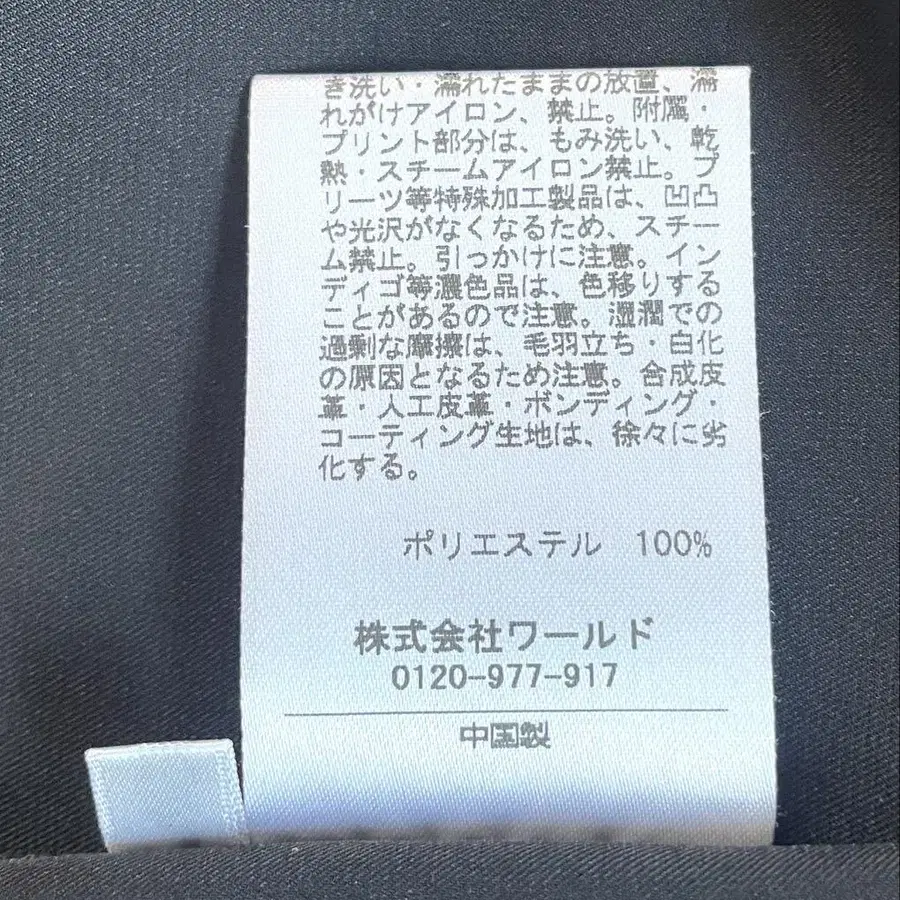 き洗い・濡れたままの放置、濡
れがけアイロン、禁止。附属・
プリント部分は、もみ洗い、乾
熱・スチームアイロン禁止。プ
リーツ等特殊加工製品は、凹凸
や光沢がなくなるため、スチー
ム禁止。引っかけに注意。イン
ディゴ等濃色品は、色移りする
ことがあるので注意。湿潤での
過剰な摩擦は、毛羽立ち・白化
の原因となるため注意。合成皮
革・人工皮革・ボンディング・
コーティング生地は、徐々に劣
化する。
ポリエステル 100%
株式会社ワールド
0120-977-917
中国製